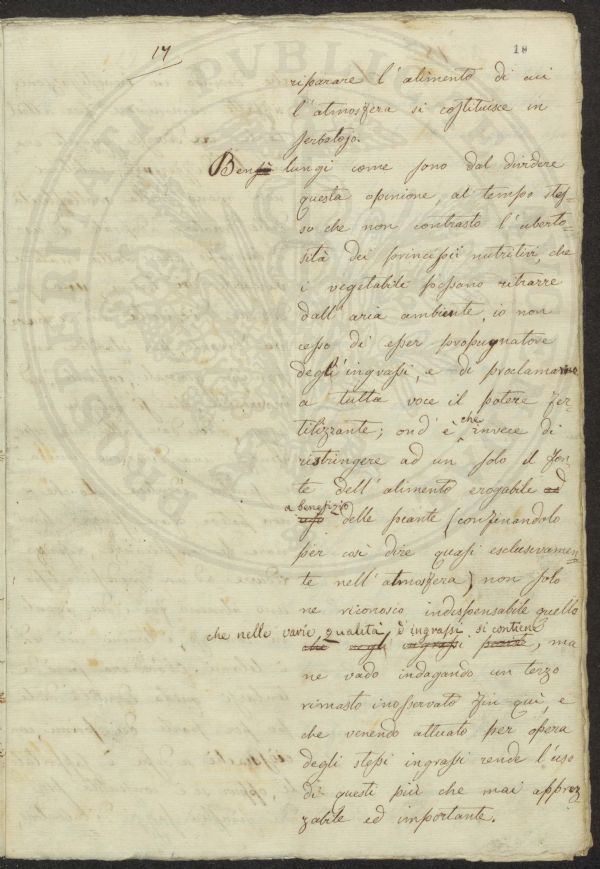 17
18
riparare l'alimento di cui
l'atmosfera si costituisce in
serbatojo.
Bensì lungi come sono dal dividere
questa opinione, al tempo stes-
so che non contrasto l'uberto-
sità dei principii nutritivi, che
i vegetabili possono ritrarre
dall'aria ambiente, io non
cesso di esser propugnatore
degl'ingrassi, e di proclamarne
a tutta voce il potere fer-
tilizzante; ond'è che invece di
ristringere ad un solo il fon-
te dell'alimento erogabile ad
a benefizio
uso delle piante (confinandolo
per così dire quasi esclusivamen-
te nell'atmosfera) non solo
ne riconosco indispensabile quello
che nelle varie qualità d'ingrassi si contiene
che negli ingrassi, ma
ne vado indagando un terzo
rimasto inosservato fin quì, e
che venendo attuato per opera
degli stessi ingrassi rende l'uso
di questi più che mai apprez
zabile ed importante.